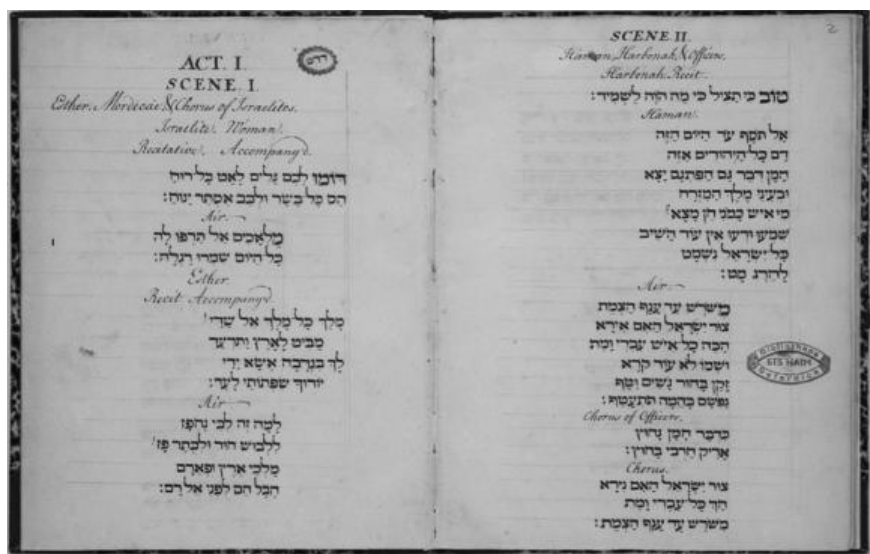 ACT. I.
SCENE. I.
Esther, Mordecai & Chorus of Israelites.
Israelite Woman.
Recitative, Accompany'd.
דומו לכם גלים לאט כל רוח
הס כל בשר ולבב אסתר ינוח:
Air
מלאכים אל תרפו לה
כל היום שמרו רגלה:
Esther.
Recit Accompany'd
מלך כל מלך אל שדי
מביט לארץ ותרעד
לך בנדבה אשא ידי
יורוך שפתותי לעד:
Air
למה זה לבי נחפז
ללבוש הוד ולכתר פז
מלכי ארץ ופארם
הבל הם לפני אל רם:
2
SCENE II.
Haman, Harbonah, & Officers.
Harbonah, Recit
טוב כי תציל כי מה תשמיד:
Haman.
אל תסף עד היום הזה
דם כל היהודים אזה
המן דבר גם הפתגם יצא
ובעיני מלך המזרח
מי איש כמני הן מצא
שמעו ודעו אין עוד השיב
כל ישראל נשמט
להרג מט:
Air
משרש עד ענף הצמת
צור ישראל האם אירא
הכה כל איש עברי ומת
ושמו לא עוד קרא
זקן בחור נשים וטף
נפשם בהמה תתעטף:
Chorus of Officers.
כדבר המן נחוץ
אריק חרבי בחוץ:
Chorus.
צור ישראל האם נירא
הך כל עברי ומת
משרש עד ענף הצמת:
ETS HAIM